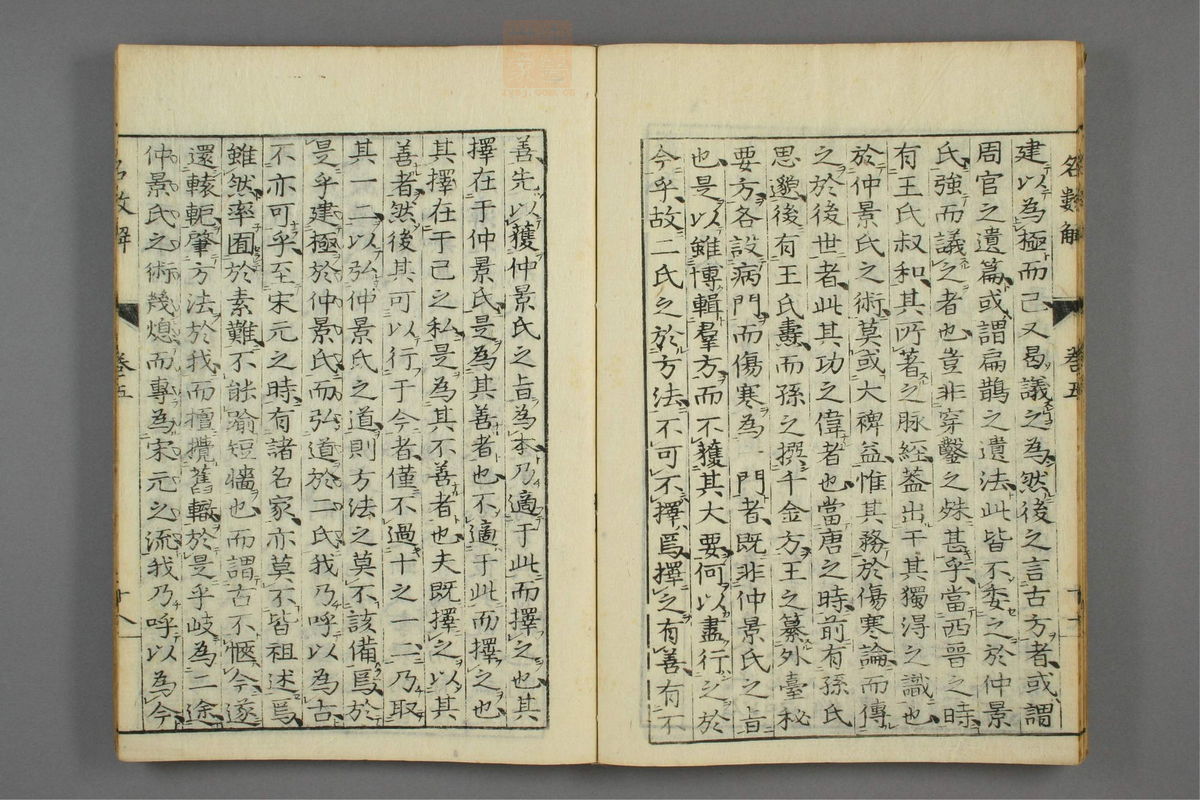 名數解 卷五
建以為極而已又曷議之為然後之言古方者或謂
周官之遺篇或謂扁鵲之遺法此皆不委之於仲景
氏強而議之者也豈非穿鑿之殊甚乎當西晉之時
有王氏叔和其所著之脉經蓋出于其獨得之識也
於仲景氏之術莫或大稗益惟其務於傷寒論而傳
之於後世者此其功之偉者也當唐之時前有孫氏
思邈後有王氏燾而孫之撰千金方王之纂外臺秘
要方各設病門而傷寒為一門者既非仲景氏之旨
也是以雖博輯羣方而不獲其大要何以盡行之於
今乎故二氏之於方法不可不擇焉擇之有善有不
善先以獲仲景氏之旨為本乃適于此而擇之也其
擇在于仲景氏是為其善者也不適于此而擇之也
其擇在于己之私是為其不善者也夫既擇之以其
善者然後其可以行于今者僅不過十之一二乃取
其一二以弘仲景氏之道則方法之莫不該備焉於
是乎建極於仲景氏而弘道於二氏我乃呼以為古
不亦可乎至宋元之時有諸名家亦莫不皆祖述焉
雖然率囿於素難不能踰短墻也而謂古不愜今遂
還轅軛肇方法於我而擅攬舊轍於是乎岐為二途
仲景氏之術幾熄而專為宋元之流我乃呼以為今
名數解 卷五